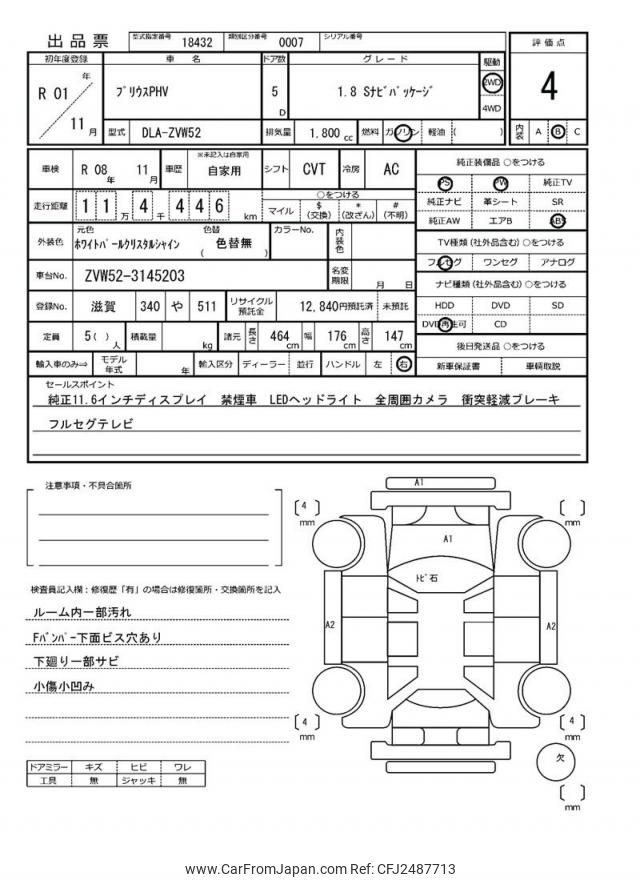 出品票 型式指定番号 18432 類別区分番号 0007 シリアル番号
初年度登録 車 名 ドア数 グレード 駆動 評価点
R 01 年 11 月 プリウスPHV 5 D 1.8 Sナビパッケージ 2WD 4WD 4
型式 DLA-ZVW52 排気量 1,800 cc 燃料 ガソリン 軽油 ( ) 内装 A B C
車検 R 08 年 11 月 車歴 ※未記入は自家用 自家用 シフト CVT 冷房 AC 純正装備品 ○をつける
PS PW 純正TV
走行距離 1 1 万 4 千 4 4 6 km ○をつける 純正ナビ 革シート SR
マイル $(交換) *(改ざん) #(不明) 純正AW エアB ABS
外装色 元色 ホワイトパールクリスタルシャイン 色替 ( 色替無 ) カラーNo. 内装色 TV種類 (社外品含む) ○をつける
フルセグ ワンセグ アナログ
車台No. ZVW52-3145203 名変期限 月 日 ナビ種類 (社外品含む) ○をつける
登録No. 滋賀 340 や 511 リサイクル預託金 12,840円預託済 未預託 HDD DVD SD
DVD再生可 CD
定員 5( ) 人 積載量 kg 諸元 長さ 464 cm 幅 176 cm 高さ 147 cm 後日発送品 ○をつける
輸入車のみ⇒ モデル年式 年 輸入区分 ディーラー 並行 ハンドル 左 右 新車保証書 車輌取説
セールスポイント
純正11.6インチディスプレイ 禁煙車 LEDヘッドライト 全周囲カメラ 衝突軽減ブレーキ
フルセグテレビ
注意事項・不具合箇所
検査員記入欄：修復歴「有」の場合は修復箇所・交換箇所を記入
ルーム内一部汚れ
Fバンパー下面ビス穴あり
下廻り一部サビ
小傷小凹み
ドアミラー キズ ヒビ ワレ
工具 無 ジャッキ 無
A1
[ 4 ] mm [ ] mm
A1
トビ石
A2 A2
[ 4 ] mm [ 4 ] mm
欠
[ ] mm
www.CarFromJapan.com Ref: CFJ2487713